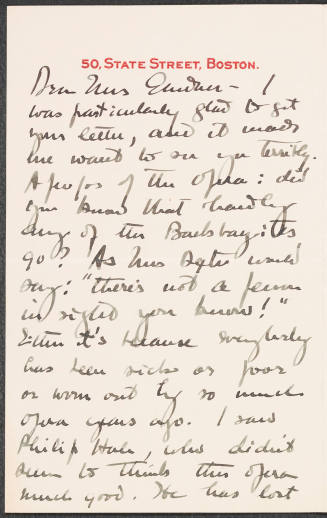 50, STATE STREET, BOSTON.
Dear Mrs Gardner - I
was particularly glad to get
your letter, and it made
me want to see you terribly.
Apropos of the Opera: did
you know that hardly
any of the Backbayites
go? As Mrs would
say: "there's not a person
in sight you know!"
Either it's because everybody
has been sick or poor
or worn out by so much
opera years ago. I saw
Philip Hale, who didn't
seem to think this opera
much good. He has lost